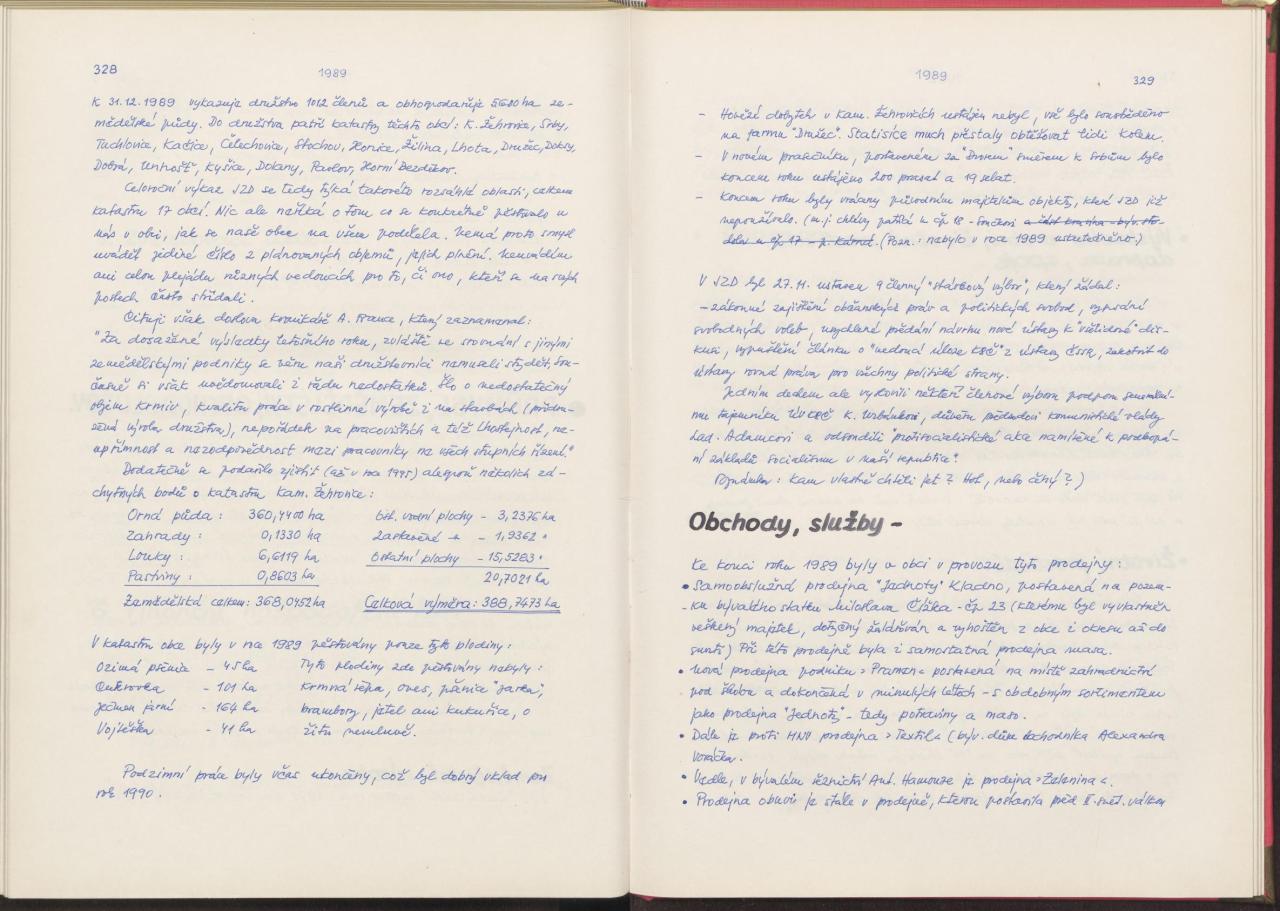 328
1989
K 31.12.1989 vykazuje družstvo 1012 členů a obhospodařuje 5680 ha ze-
mědělské půdy. Do družstva patří katastry těchto obcí: K. Žehrovice, Srby,
Tuchlovice, Kačice, Čelechovice, Stochov, Honice, Žilina, Lhota, Družec, Doksy,
Dobrá, Unhošť, Kyšice, Dokany, Pavlov, Horní Bezděkov.
Celoroční výkaz JZD se tedy týká takovéto rozsáhlé oblasti, celkem
katastru 17 obcí. Nic ale neříká o tom co se konkrétně pěstovalo u
nás v obci, jak se naše obec na všem podílela. Nemá proto smysl
uvádět jediné číslo z plánovaných objemů, jejich plnění. Neuvádím
ani celou plejádu různých vedoucích pro to, či ono, kteří se na svých
postech často střídali.
Cituji však doslova kronikáře A. France, který zaznamenal:
"Za dosažené výsledky letošního roku, zvláště ve srovnání s jinými
zemědělskými podniky se věru naši družstevníci nemuseli stydět, sou-
časně si však uvědomovali i řadu nedostatků. Šlo o nedostatečný
objem krmiv, kvalitu práce v rostlinné výrobě i na stavbách (přidru-
žená výroba družstva), nepořádek na pracovištích a též lhostejnost, ne-
upřímnost a nezodpovědnost mezi pracovníky na všech stupních řízení."
Dodatečně se podařilo zjistit (až v roce 1995) alespoň několik zá-
chytných bodů o katastru Kam. Žehrovice:
Orná půda : 360,4400 ha
Zahrady : 0,1330 ha
Louky : 6,6119 ha
Pastviny : 0,8603 ha
Zemědělská celkem: 368,0452 ha
vodní plochy - 3,2376 ha
Zastavěné - 1,9362 "
Ostatní plochy - 15,5283 "
20,7021 ha
Celková výměra: 388,7473 ha
V katastru obce byly v roce 1989 pěstovány pouze tyto plodiny:
Ozimá pšenice - 45 ha
Cukrovka - 101 ha
Ječmen jarní - 164 ha
Vojtěška - 41 ha
Tyto plodiny zde pěstovány nebyly:
krmná řepa, oves, pšenice "jarka",
brambory, jetel ani kukuřice, o
žitu nemluvě.
Podzimní práce byly včas ukončeny, což byl dobrý vklad pro
rok 1990.
1989
329
- Hovězí dobytek v Kam. Žehrovicích ustájen nebyl, vše bylo soustředěno
na farmu "Družec". Statisíce much přestaly obtěžovat lidi kolem.
- V novém prasečníku, postaveném za "Dvorem" směrem k Srbům bylo
koncem roku ustájeno 200 prasat a 19 selat.
- Koncem roku byly vráceny původním majitelům objekty, které JZD již
nepoužívalo. (m.j. chlévy patřící k čp 18 - a část kravína - býv. sto-
doly u čp. 17 - p. Kárná. (Pozn.: nebylo v roce 1989 uskutečněno.)
V JZD byl 27.11. ustaven 9 členný "stávkový výbor", který žádal:
- zákonné zajištění občanských práv a politických svobod, vypsání
svobodných voleb, urychlené předání návrhu nové ústavy k "všelidové" dis-
kusi, vypuštění článku o "vedoucí úloze KSČ" z ústavy ČSSR, zakotvit do
ústavy rovná práva pro všechny politické strany.
Jedním dechem ale vyslovili někteří členové výboru podporu generální-
mu tajemníku ÚV KSČ K. Urbánkovi, důvěru předsedovi komunistické vlády
Lad. Adamcovi a odsoudili "protisocialistické akce namířené k podkopá-
ní základů socialismu v naší republice".
Poznámka: Kam vlastně chtěli jet? Hot, nebo čehý?)
Obchody, služby -
Ke konci roku 1989 byly v obci v provozu tyto prodejny:
• Samoobslužná prodejna "Jednoty" Kladno, postavená na pozem-
- ku bývalého statku Miloslava Čížka - čp 23 (kterému byl vyvlastněn
veškerý majetek, dotyčný žalářován a vyhoštěn z obce i okresu až do
smrti) Při této prodejně byla i samostatná prodejna masa.
• Nová prodejna podniku > Pramen < postavená na místě zahradnictví
pod školou a dokončená v minulých létech - s obdobným sortimentem
jako prodejna "Jednoty" - tedy potraviny a maso.
• Dále je proti MNV prodejna > Textil < (býv. dům obchodníka Alexandra
Voráčka.
• Vedle, v bývalém řeznictví Ant. Hamouze je prodejna > Zelenina <.
• Prodejna obuvi je stále v prodejně, kterou postavila před II. svět. válkou